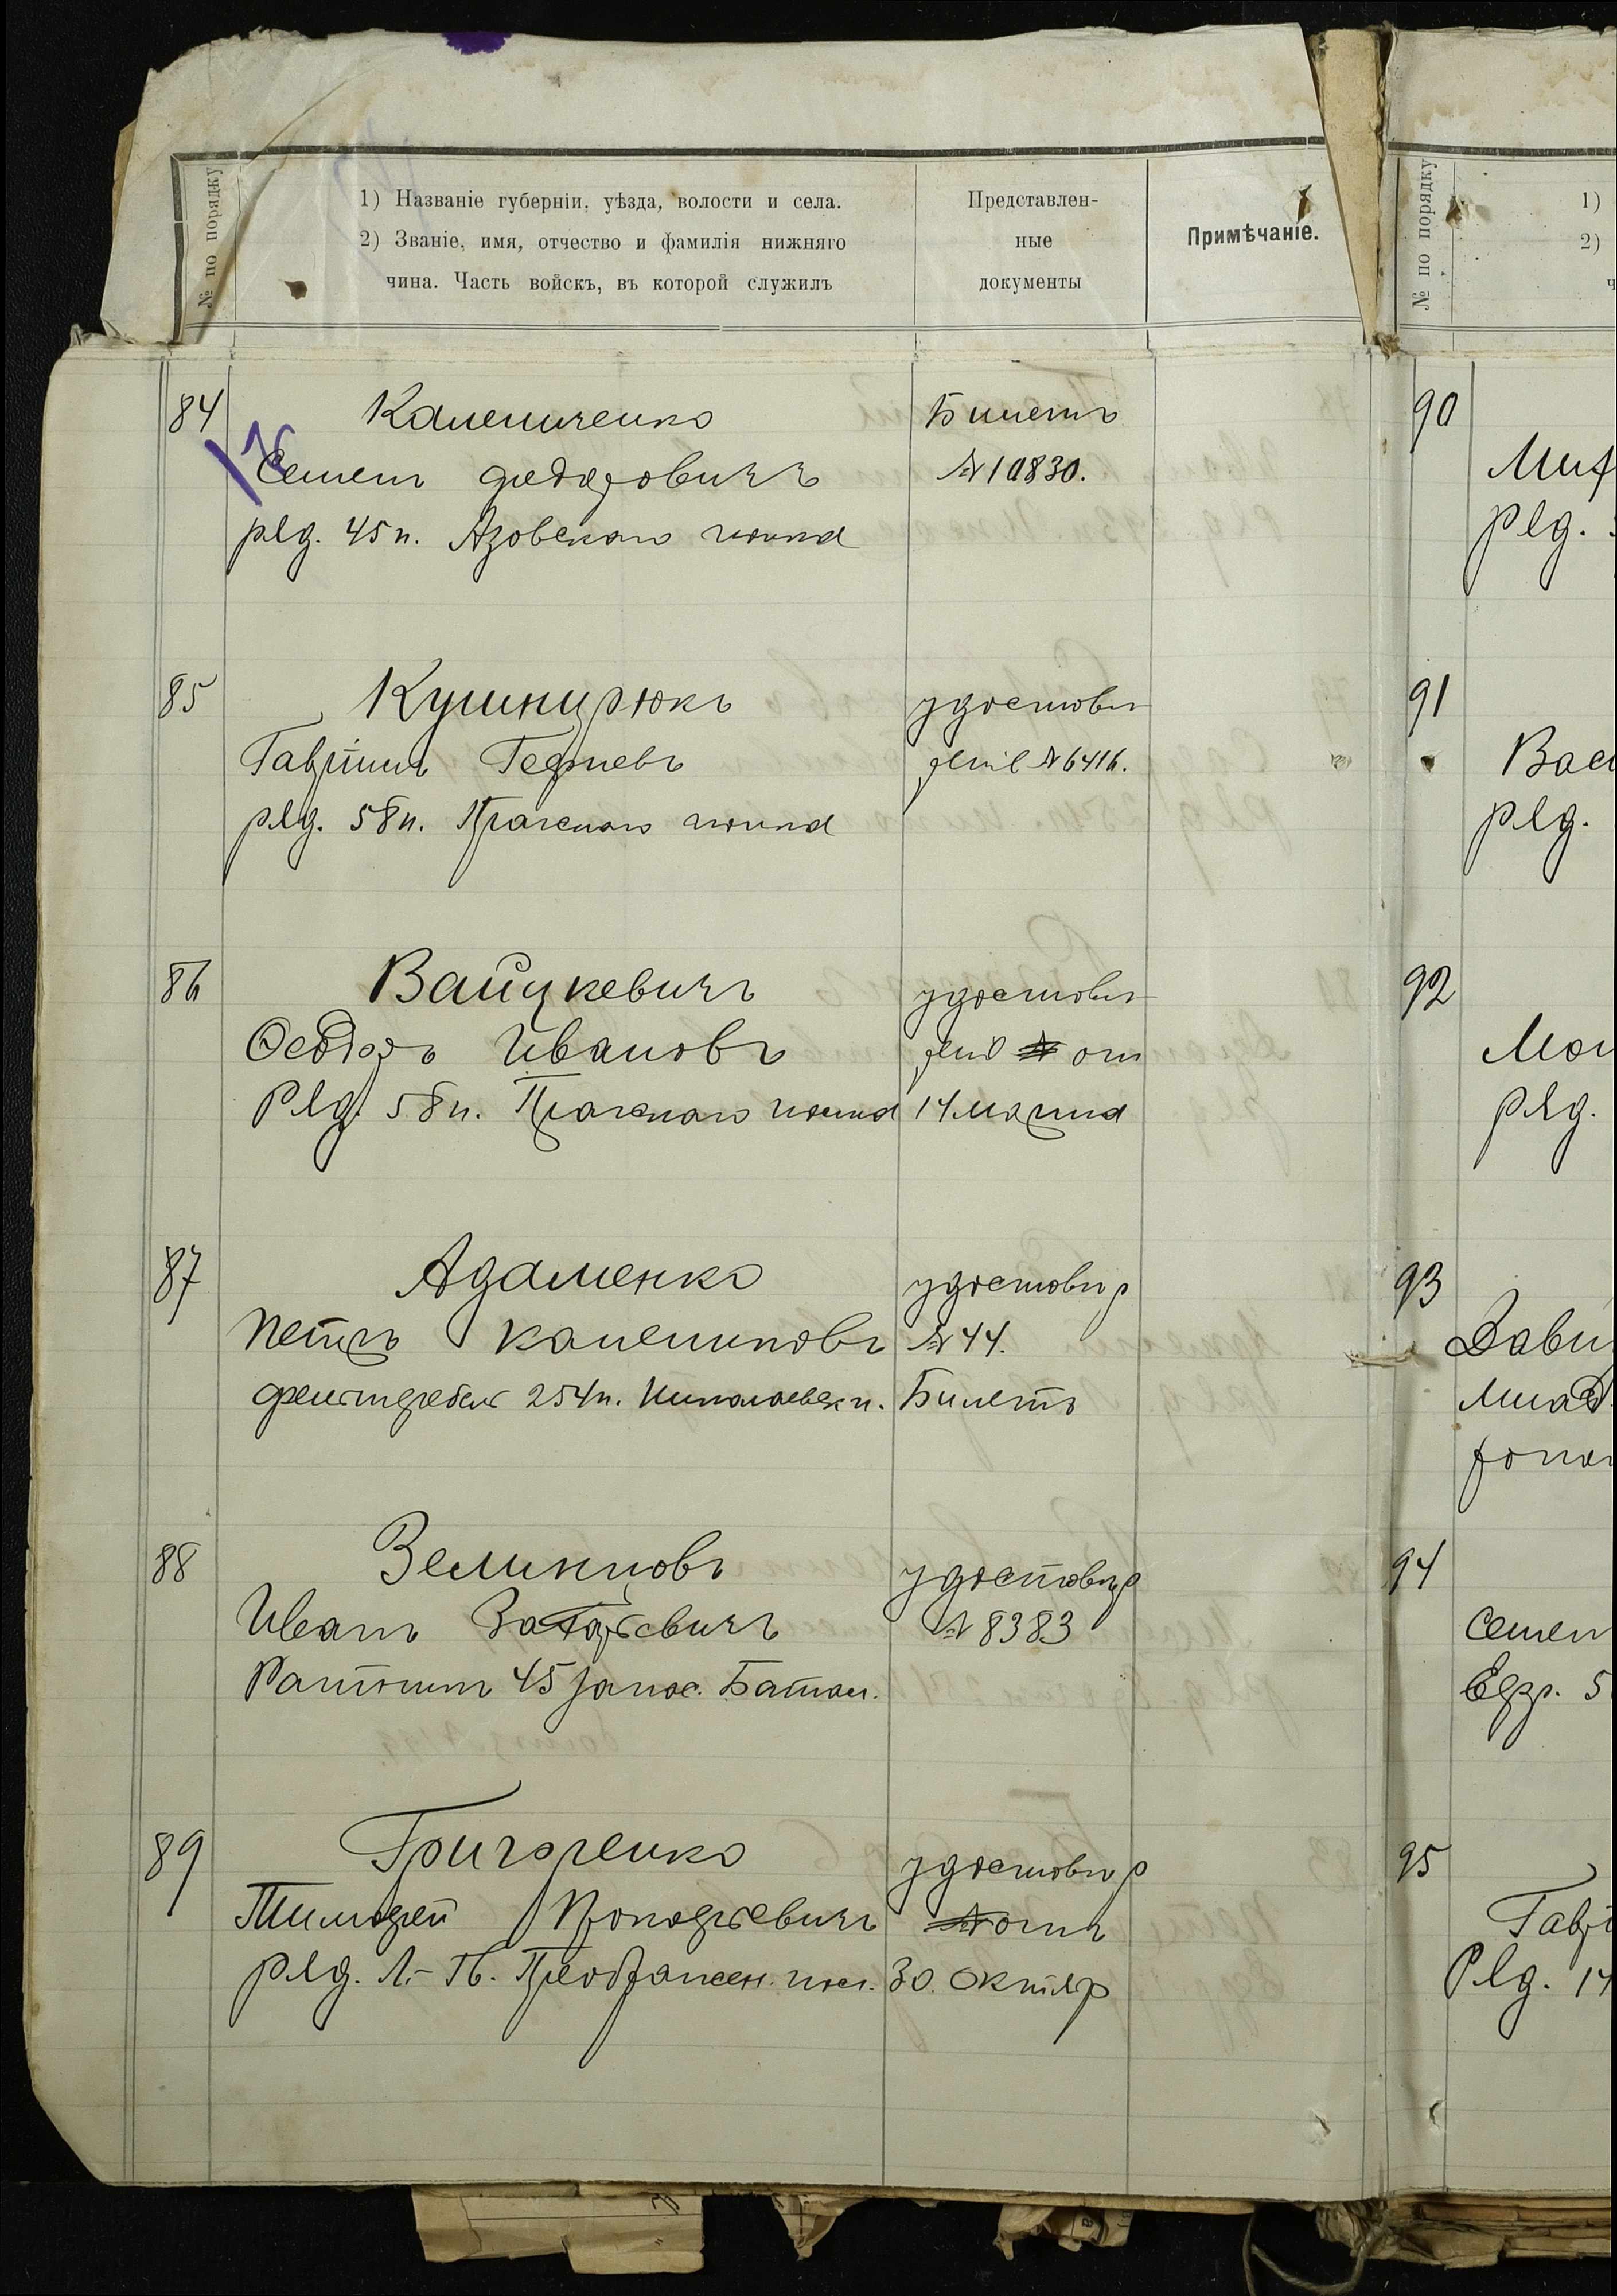 № по порядку
1) Названіе губерніи, уѣзда, волости и села.
2) Званіе, имя, отчество и фамилія нижняго
чина. Часть войскъ, въ которой служилъ
Представлен-
ные
документы
Примѣчаніе.
84
Семенъ Федоровичъ
ряд. 45 п. Азовскаго полка
Билетъ
№ 10830.
85
Кушнирюкъ
Гавріилъ
ряд. 58 п. Пражскаго полка
удостовѣ-
реніе № 6416.
86
Вайцкевичъ
Ѳеодоръ Ивановъ
Ряд. 58 п. Пражскаго полка
удостовѣ-
14 марта
87
Адаменко
Петръ
фельдфебель 254 п. Николаевск п.
удостовѣр
№ 44.
Билетъ
88
Иванъ
Ратникъ 45 запас. Батал.
удостовѣр
№ 8383
89
Григоренко
Тимофей Прокофьевичъ
ряд. Л.-Гв. Преображен. пол.
удостовѣр
30. Октяр
№ по порядку
1)
2)
ч
90
Мит
ряд.
91
Вас
ряд.
92
ряд.
93
Дави
млад.
94
Семен
Ефр. 5
95
Гаврі
Ряд. 14